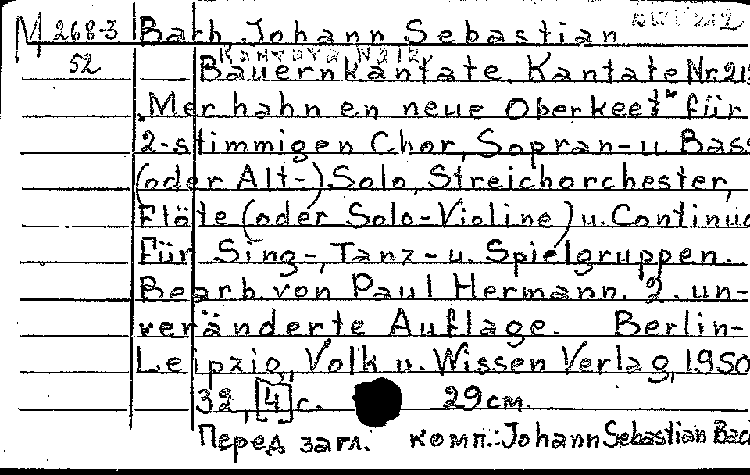 М 268-3 Bach Johann Sebastian
52 Bauernkantate. Kantate Nr. 212
„Mer hahn en neue Oberkeet" für
2-stimmigen Chor, Sopran- u. Bass
(oder Alt-) Solo, Streichorchester,
Flöte (oder Solo-Violine) u. Continuo
Für Sing-, Tanz- u. Spielgruppen.
Bearb. von Paul Hermann. 2. un-
veränderte Auflage. Berlin-
Leipzig, Volk u. Wissen Verlag, 1950
32, [4] с. 29 см.
Перед загл. комп.: Johann Sebastian Bac